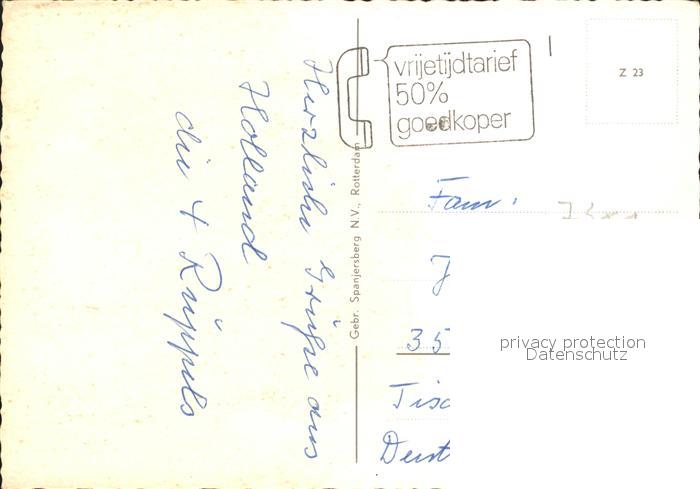 Herzliche Grüße aus
Holland
die 4 Rüppels
Gebr. Spanjersberg N.V., Rotterdam
vrijetijdtarief
50%
goedkoper
Z 23
Fam.
J
35
privacy protection
Datenschutz
Tisc
Deut